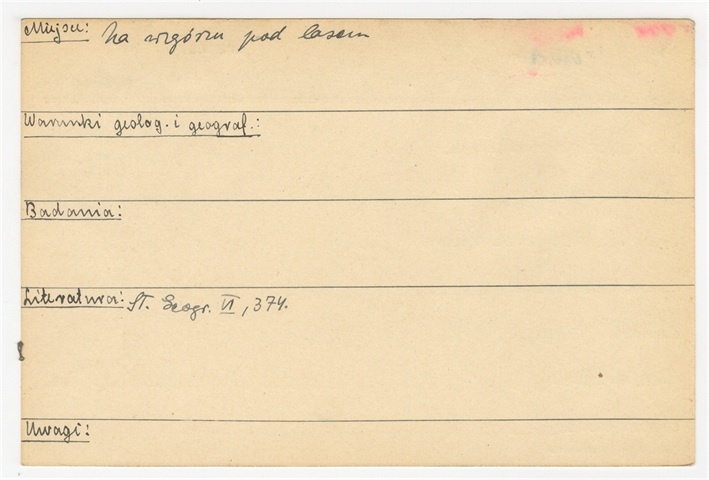 Miejsce: na wzgórzu pod lasem
Warunki geolog. i geograf.:
Badania:
Literatura: Sł. Geogr. VI, 374.
Uwagi: